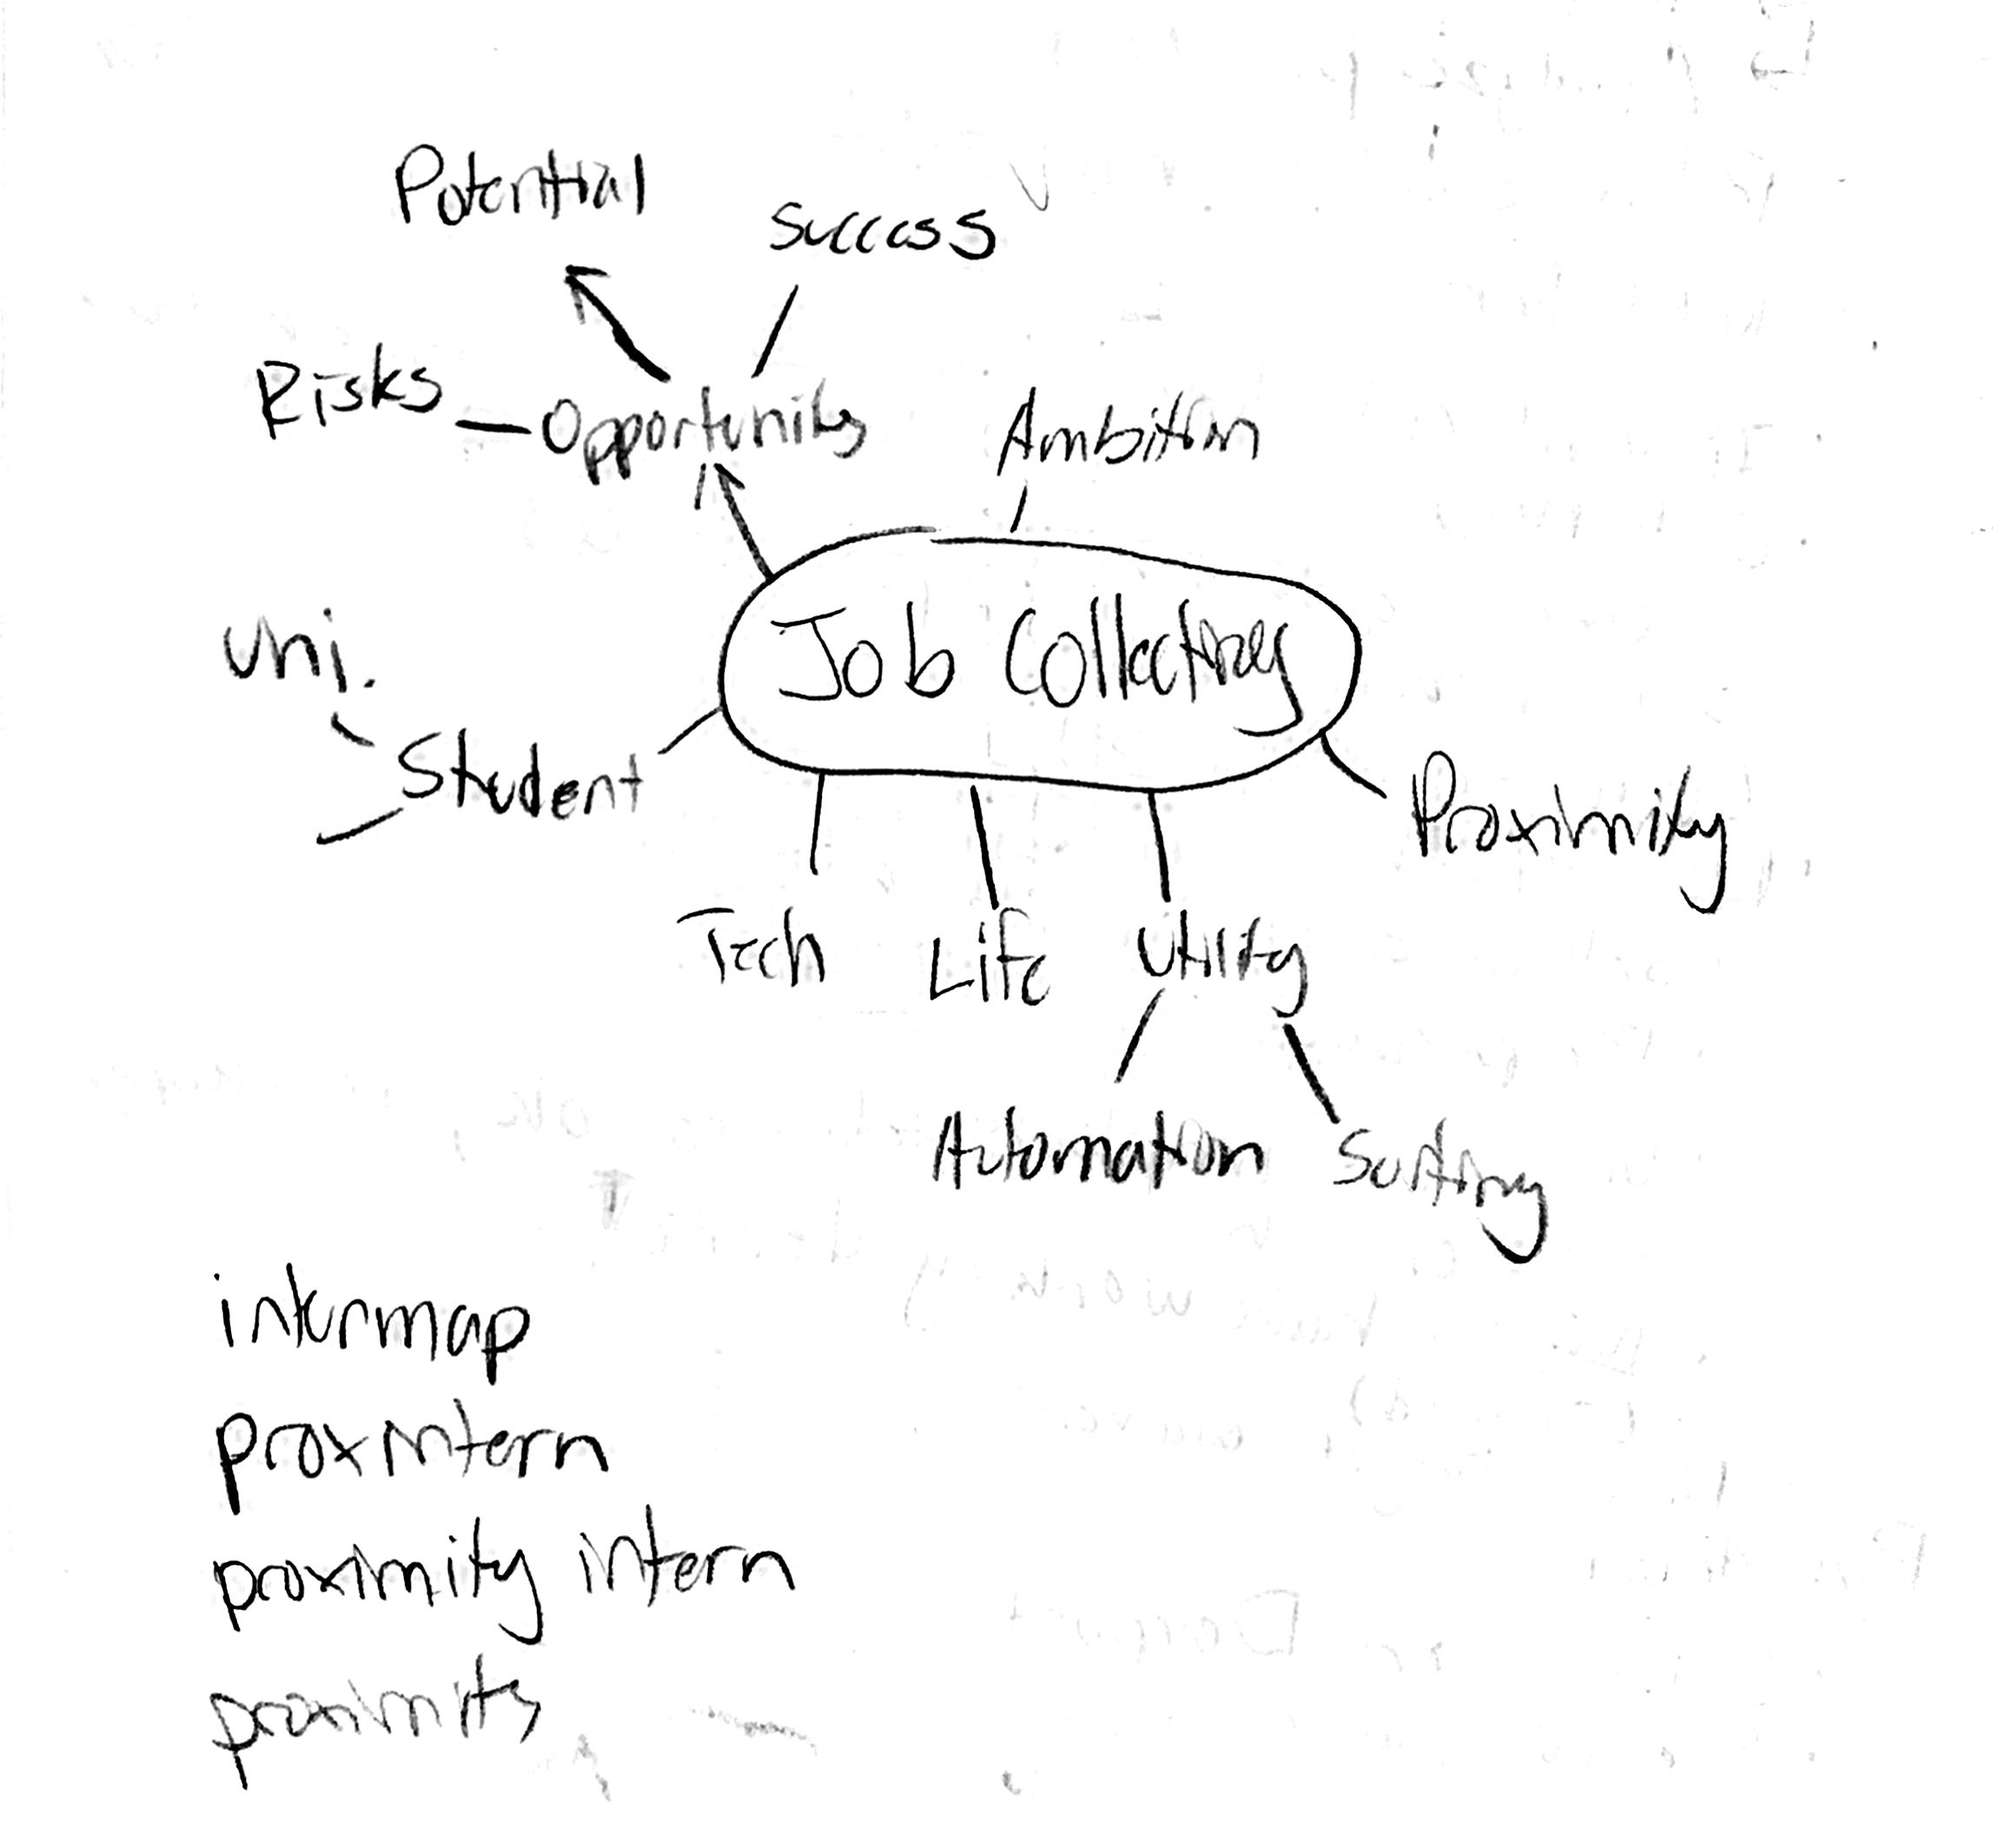 Potential
success
Risks
Opportunity
Ambition
Job Collecting
uni.
Student
Proximity
Tech
Life
utility
Automation
Sorting
internmap
proxintern
proximity intern
proximity